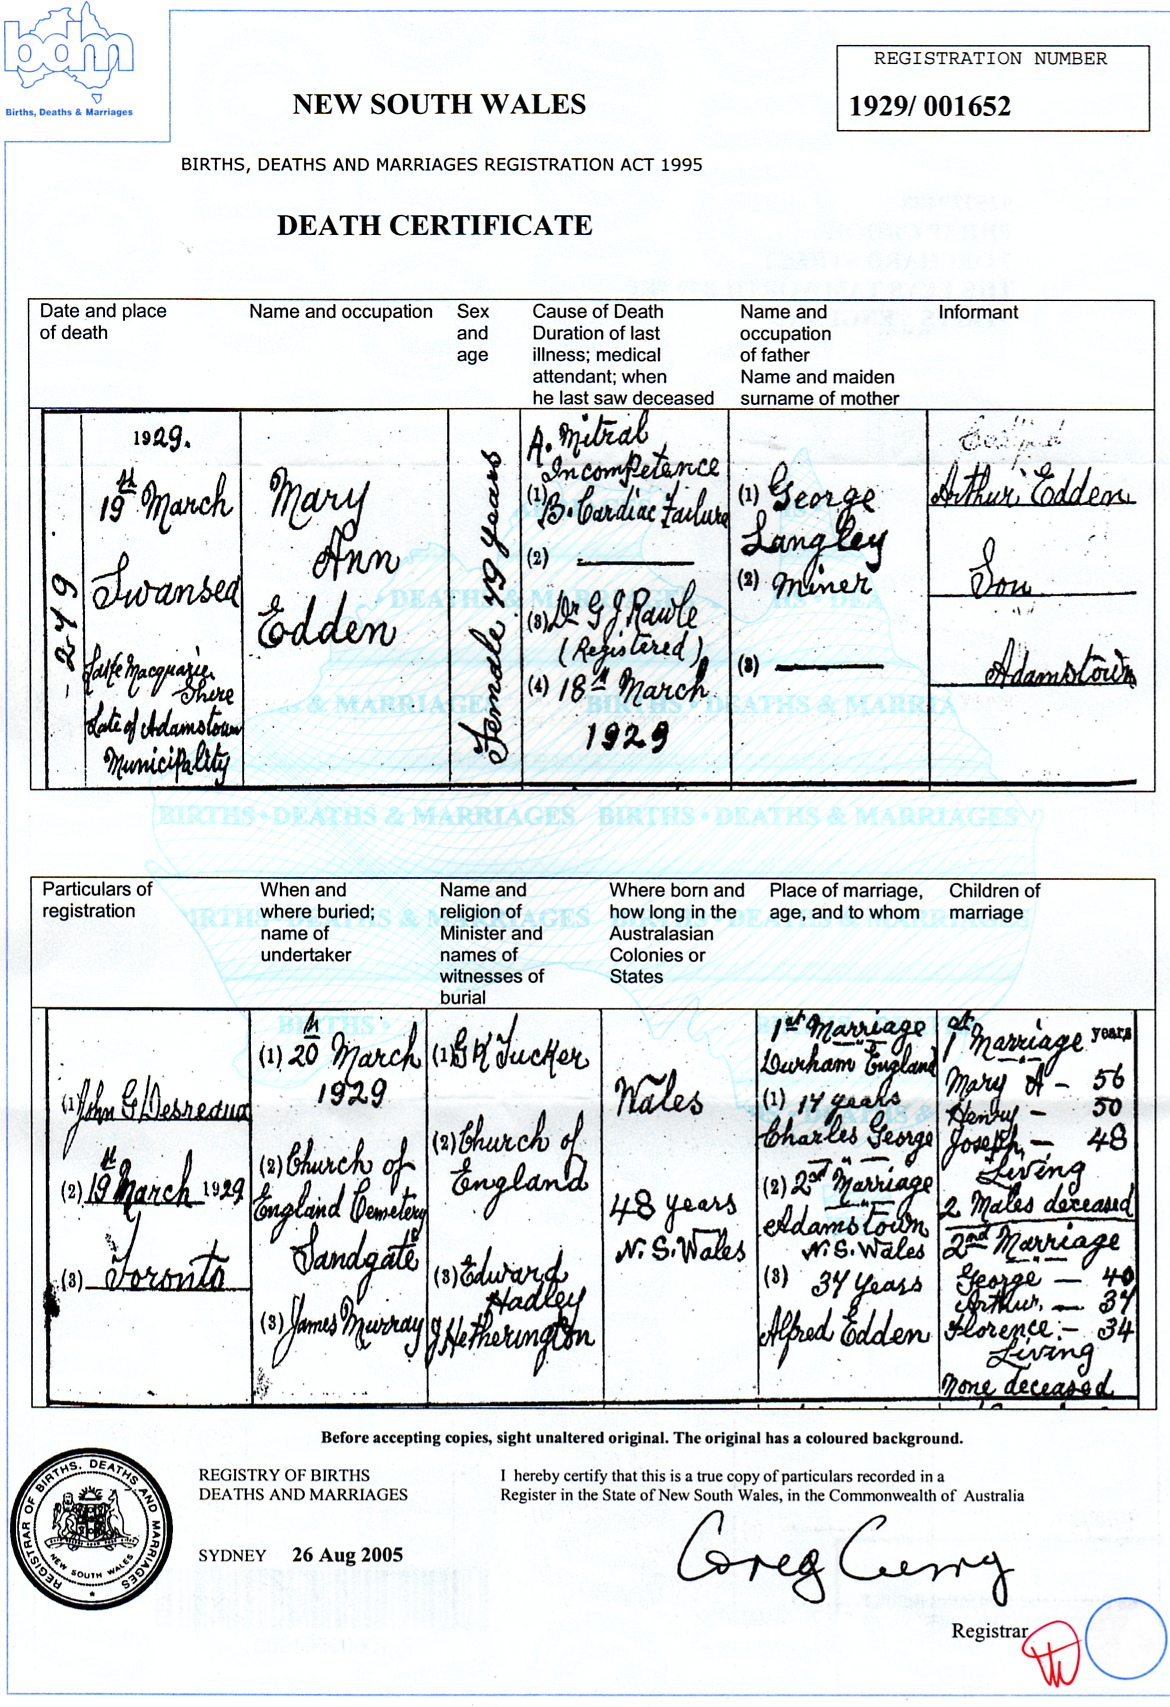 bdm
Births, Deaths & Marriages
REGISTRATION NUMBER
1929/ 001652
NEW SOUTH WALES
BIRTHS, DEATHS AND MARRIAGES REGISTRATION ACT 1995
DEATH CERTIFICATE
Date and place
of death
Name and occupation
Sex
and
age
Cause of Death
Duration of last
illness; medical
attendant; when
he last saw deceased
Name and
occupation
of father
Name and maiden
surname of mother
Informant
249
1929.
19th March
Swansea
Lake Macquarie
Shire
Late of Adamstown
Municipality
Mary
Ann
Edden
Female 79 years
A. Mitral
Incompetence
(1)
B. Cardiac Failure
(2)
(3) Dr G J Rawle
(Registered)
(4) 18th March
1929
(1) George
Langley
(2) Miner
(3)
Arthur Edden
Son
Adamstown
Particulars of
registration
When and
where buried;
name of
undertaker
Name and
religion of
Minister and
names of
witnesses of
burial
Where born and
how long in the
Australasian
Colonies or
States
Place of marriage,
age, and to whom
Children of
marriage
(1) John G
(2) 19th March 1929
(3) Toronto
(1) 20th March
1929
(2) Church of
England Cemetery
Sandgate
(3) James Murray
(1) G K Tucker
(2) Church of
England
(3) Edward
Hadley
J Hetherington
Wales
48 years
N.S.Wales
1st Marriage
Durham England
(1) 17 years
Charles George
(2) 2nd Marriage
Adamstown
N.S.Wales
(3) 37 years
Alfred Edden
1st Marriage years
Mary A - 56
Henry - 50
Joseph - 48
Living
2 Males deceased
2nd Marriage
George - 40
Arthur - 37
Florence - 34
Living
None deceased
BIRTHS • DEATHS & MARRIAGES BIRTHS • DEATHS & MARRIAGES
Before accepting copies, sight unaltered original. The original has a coloured background.
REGISTRAR OF BIRTHS, DEATHS AND MARRIAGES
NEW SOUTH WALES
REGISTRY OF BIRTHS
DEATHS AND MARRIAGES
SYDNEY 26 Aug 2005
I hereby certify that this is a true copy of particulars recorded in a
Register in the State of New South Wales, in the Commonwealth of Australia
Greg Curry
Registrar